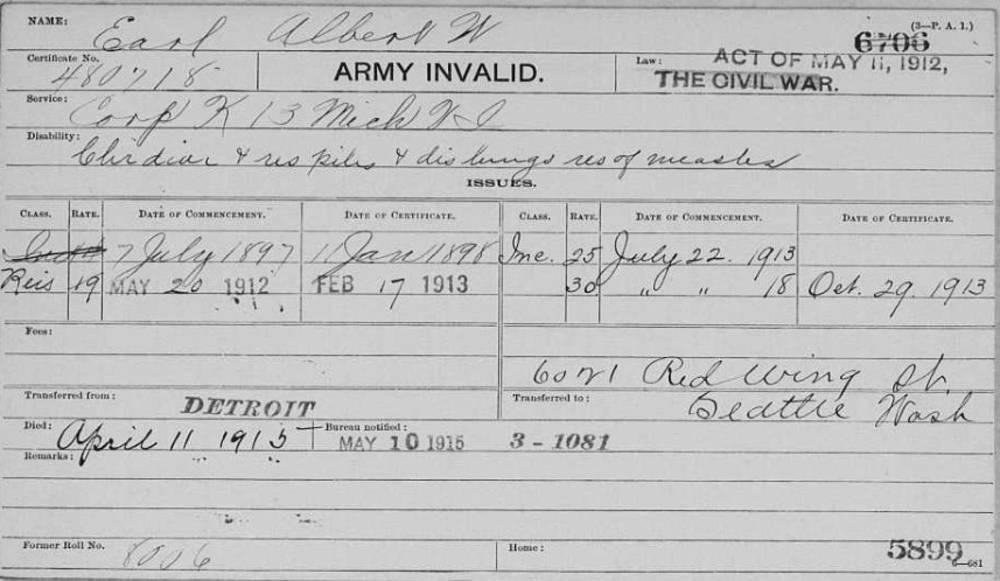 NAME: Earl Albert W (3—P. A. 1.)
6706
Certificate No. 480718 ARMY INVALID. Law: ACT OF MAY 11, 1912,
THE CIVIL WAR.
Service: Corp K 13 Mich V I
Disability: Chr diar & res piles & dis lungs res of measles
ISSUES.
CLASS. RATE. DATE OF COMMENCEMENT. DATE OF CERTIFICATE. CLASS. RATE. DATE OF COMMENCEMENT. DATE OF CERTIFICATE.
7 July 1897 11 Jan 1898 Inc. 25 July 22. 1913
Reis 19 MAY 20 1912 FEB 17 1913 30 " " 18 Oct. 29. 1913
Fees:
6021 Red Wing St.
Transferred from: DETROIT Transferred to: Seattle Wash
Died: April 11 1915 Bureau notified: MAY 10 1915 3-1081
Remarks:
Former Roll No. 8006 Home: 5899
6—681